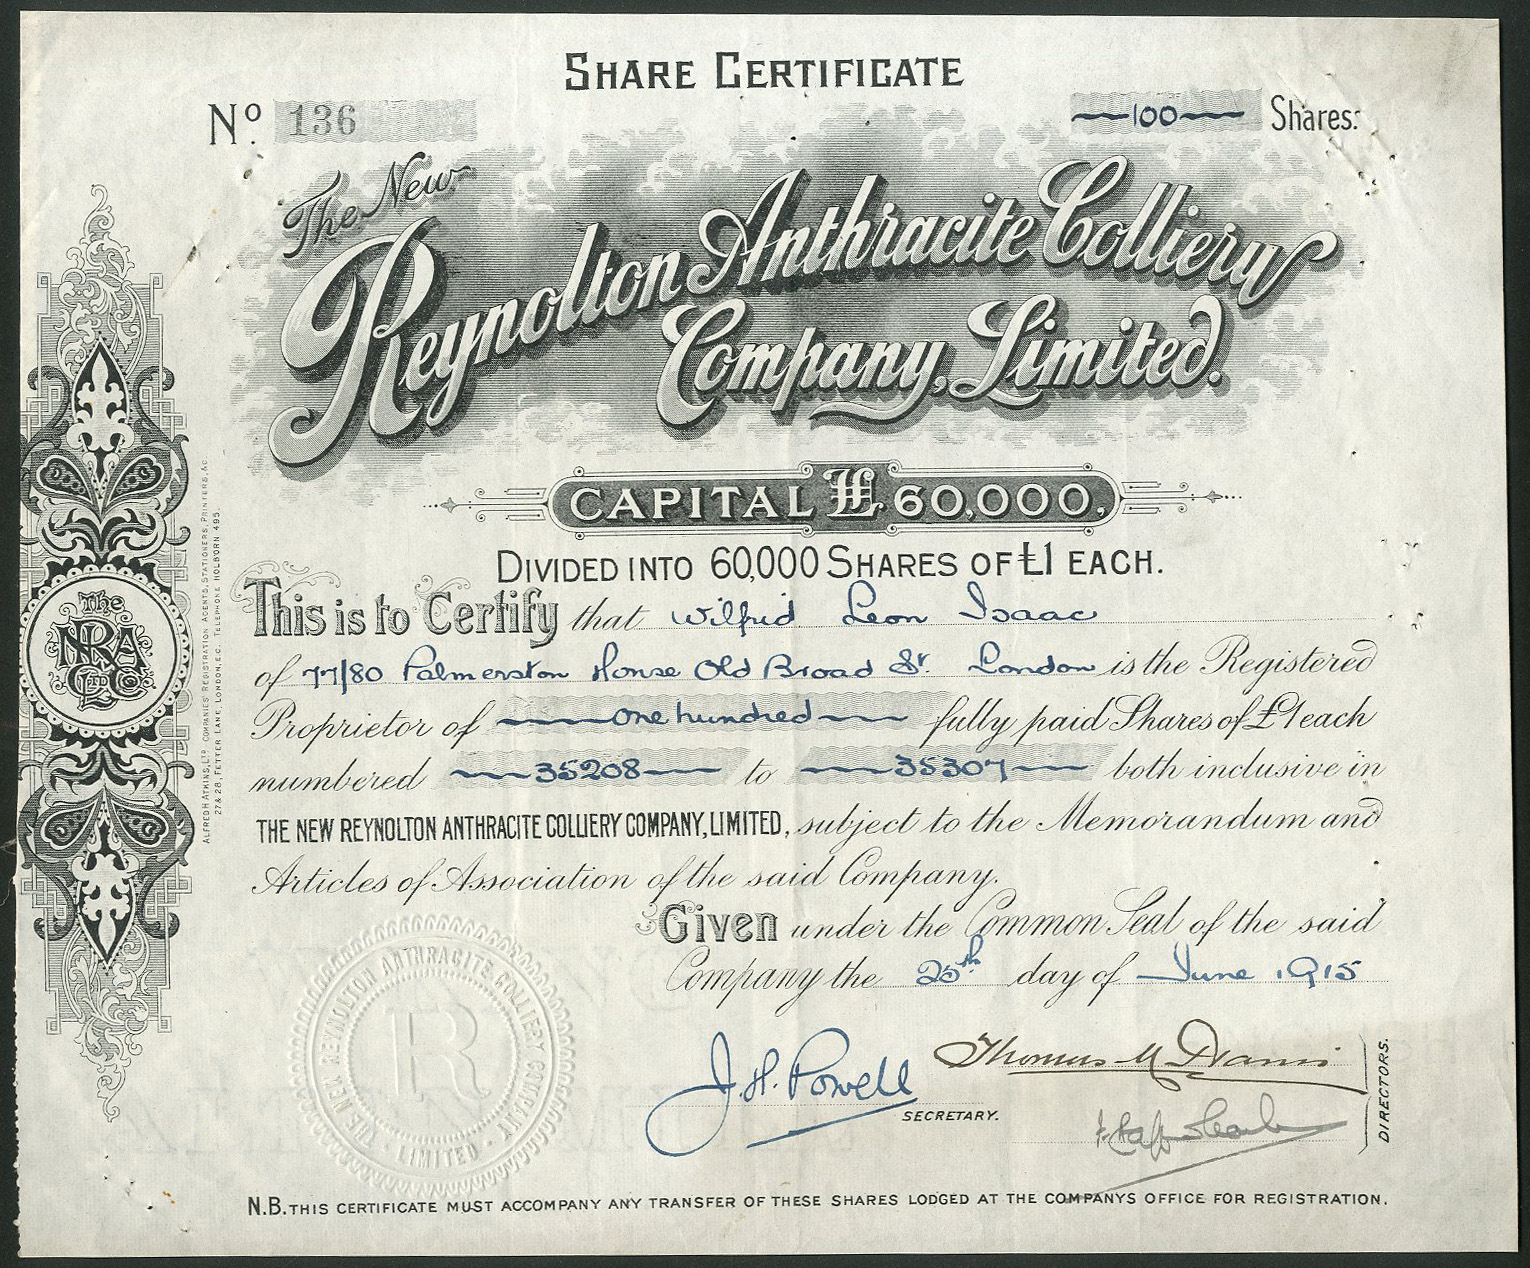 SHARE CERTIFICATE
No 136
100 Shares.
The New
Reynolton Anthracite Colliery
Company, Limited.
CAPITAL £60,000.
DIVIDED INTO 60,000 SHARES OF £1 EACH.
This is to Certify that Wilfrid Leon Isaac
of 77/80 Palmerston House Old Broad St. London is the Registered
Proprietor of One hundred fully paid Shares of £1 each
numbered 35208 to 35307 both inclusive in
THE NEW REYNOLTON ANTHRACITE COLLIERY COMPANY, LIMITED, subject to the Memorandum and
Articles of Association of the said Company.
Given under the Common Seal of the said
Company the 25th day of June 1915
J. H. Powell
SECRETARY.
Thomas
DIRECTORS.
N.B. THIS CERTIFICATE MUST ACCOMPANY ANY TRANSFER OF THESE SHARES LODGED AT THE COMPANYS OFFICE FOR REGISTRATION.
The
NRA
Co
LTD
ALFRED H ATKINS, LTD. COMPANIES' REGISTRATION AGENTS, STATIONERS, PRINTERS, &c
27 & 28, FETTER LANE, LONDON, E.C. TELEPHONE HOLBORN 495.
THE NEW REYNOLTON ANTHRACITE COLLIERY COMPANY
LIMITED
R